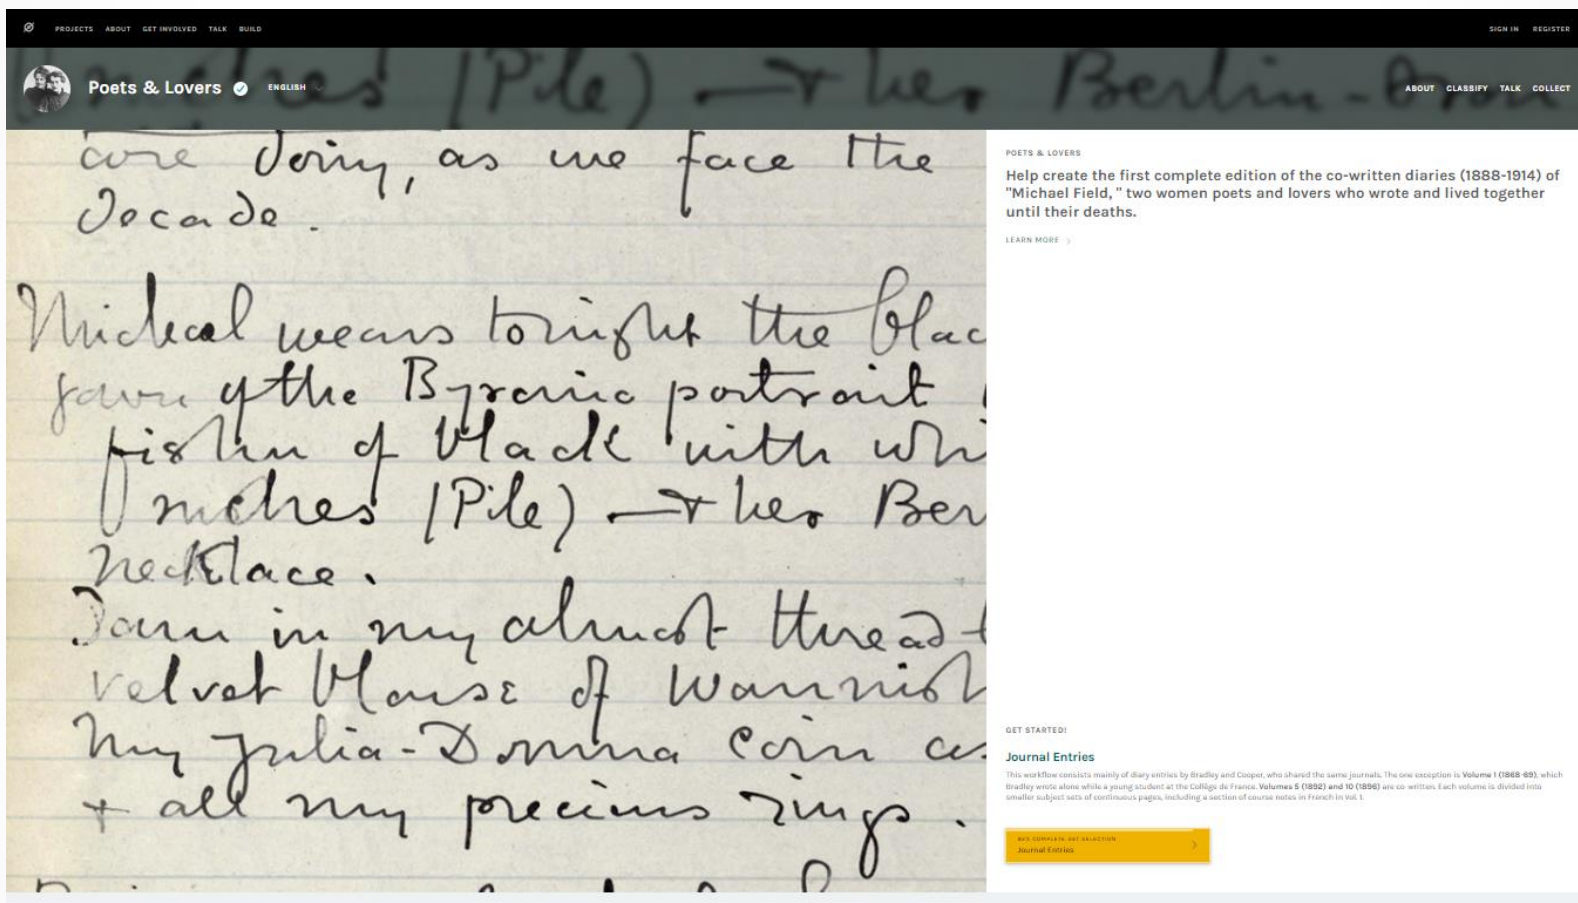 PROJECTS ABOUT GET INVOLVED TALK BUILD
SIGN IN REGISTER
Poets & Lovers ENGLISH
ches (Pile) — & her Berlin-
ABOUT CLASSIFY TALK COLLECT
are doing, as we face the
Decade.
Micheal wears tonight the blac
gown of the Byronic portrait
of black with whi
niches (Pile) — & her Ber
necklace.
I am in my almost thread
velvet blouse of
my Julia-Domna coin as
& all my precious rings.
POETS & LOVERS
Help create the first complete edition of the co-written diaries (1888-1914) of
"Michael Field, " two women poets and lovers who wrote and lived together
until their deaths.
LEARN MORE
GET STARTED!
Journal Entries
This workflow consists mainly of diary entries by Bradley and Cooper, who shared the same journals. The one exception is Volume 1 (1868-69), which
Bradley wrote alone while a young student at the Collège de France. Volumes 5 (1892) and 10 (1896) are co-written. Each volume is divided into
smaller subject sets of continuous pages, including a section of course notes in French in Vol. 1.
COMPLETE SET SELECTION
Journal Entries